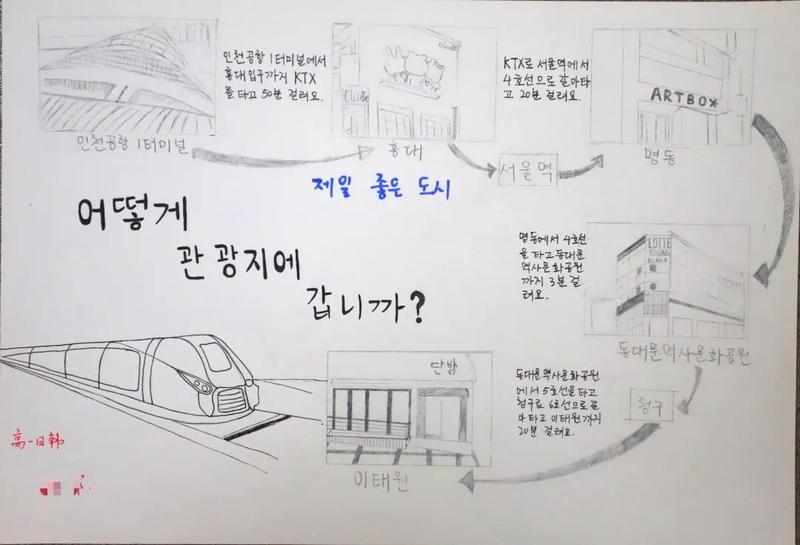 인천공항 1터미널에서
홍대입구까지 KTX
를 타고 50분 걸려요.
인천공항 1터미널
Clubic
홍대
KTX로 서울역에서
4호선으로 갈아타
고 20분 걸려요.
서울역
ARTBOX
명동
제일 좋은 도시
어떻게
관광지에
갑니까?
명동에서 4호선
을 타고 동대문
역사문화공원
까지 3분 걸
려요.
LOTTE
YOUNG
PLAZA
동대문역사문화공원
청구
동대문역사문화공원
에서 5호선을 타고
청구로 6호선으로 갈
아타고 이태원까지
20분 걸려요.
단밤
이태원
高一日韩